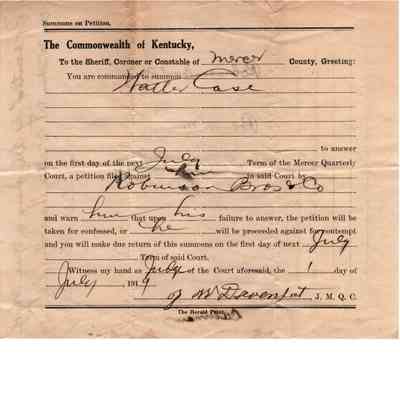 Summons on Petition.
The Commonwealth of Kentucky,
To the Sheriff, Coroner or Constable of Mercer County, Greeting:
You are commanded to summon
Walter Case
to answer
on the first day of the next July Term of the Mercer Quarterly
Court, a petition filed against him in said Court by
Robinson Bros & Co
and warn him that upon his failure to answer, the petition will be
taken for confessed, or he will be proceeded against for contempt
and you will make due return of this summons on the first day of next July
Term of said Court.
Witness my hand as Judge of the Court aforesaid, the 1 day of
July 1919
Davenport, J. M. Q. C.
The Herald Print.